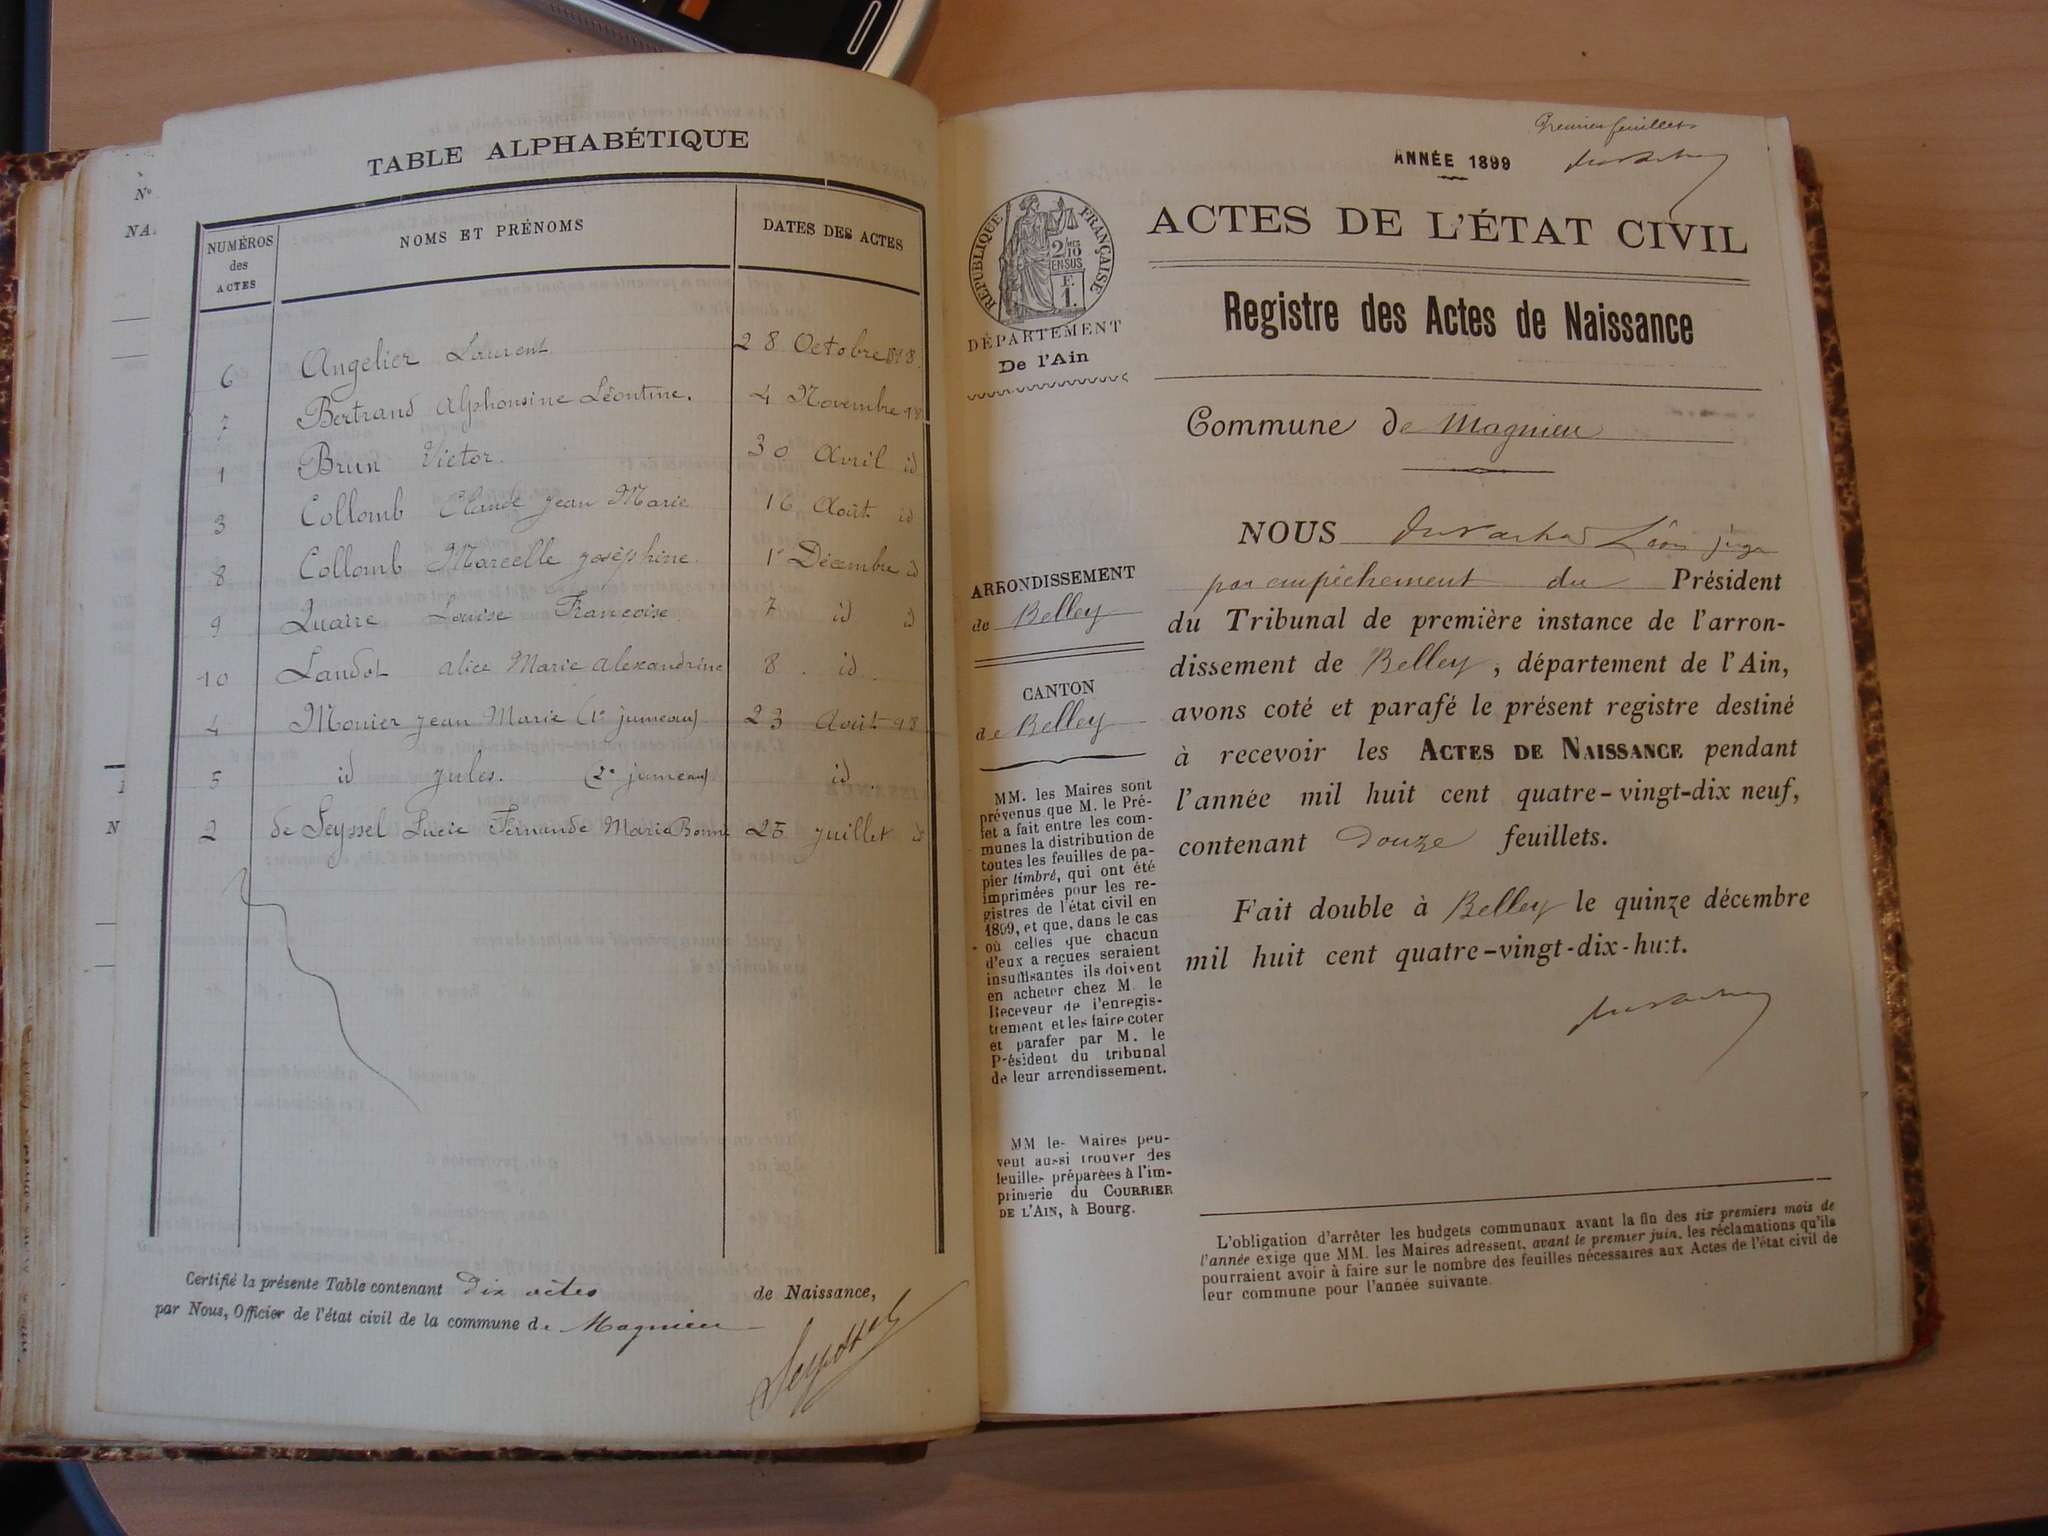 TABLE ALPHABÉTIQUE
NUMÉROS des ACTES
NOMS ET PRÉNOMS
DATES DES ACTES
6 Angelier Laurent 28 Octobre 1898
7 Bertrand Alphonsine Léontine. 4 Novembre 98
1 Brun Victor. 30 Avril id
3 Collomb Claude Jean Marie 16 Août id
8 Collomb Marcelle Joséphine. 1r Décembre id
9 Quarre Louise Françoise 7 id id
10 Landot Alice Marie Alexandrine 8 id
4 Monier Jean Marie (1er jumeau) 23 Août 98
5 id Jules. (2e jumeau) id
2 de Seyssel Lucie Fernande Marie Bonne 25 Juillet id
Certifié la présente Table contenant dix actes de Naissance,
par Nous, Officier de l'état civil de la commune de Magnieu
Seyssel
N°
NA
N
Premier feuillet
ANNÉE 1899
RÉPUBLIQUE FRANÇAISE
2/10
EN SUS
E
1.
ACTES DE L'ÉTAT CIVIL
DÉPARTEMENT
De l'Ain
Registre des Actes de Naissance
Commune de Magnieu
ARRONDISSEMENT
de Belley
CANTON
de Belley
MM. les Maires sont
prévenus que M. le Pré-
fet a fait entre les com-
munes la distribution de
toutes les feuilles de pa-
pier timbré, qui ont été
imprimées pour les re-
gistres de l'état civil en
1899, et que, dans le cas
où celles que chacun
d'eux a reçues seraient
insuffisantes ils doivent
en acheter chez M. le
Receveur de l'enregis-
trement et les faire coter
et parafer par M. le
Président du tribunal
de leur arrondissement.
MM les Maires peu-
vent aussi trouver des
feuilles préparées à l'im-
primerie du COURRIER
DE L'AIN, à Bourg.
NOUS Léon juge
par empêchement du Président
du Tribunal de première instance de l'arron-
dissement de Belley, département de l'Ain,
avons coté et parafé le présent registre destiné
à recevoir les ACTES DE NAISSANCE pendant
l'année mil huit cent quatre-vingt-dix neuf,
contenant Douze feuillets.
Fait double à Belley le quinze décembre
mil huit cent quatre-vingt-dix-huit.
L'obligation d'arrêter les budgets communaux avant la fin des six premiers mois de
l'année exige que MM. les Maires adressent, avant le premier juin, les réclamations qu'ils
pourraient avoir à faire sur le nombre des feuilles nécessaires aux Actes de l'état civil de
leur commune pour l'année suivante.